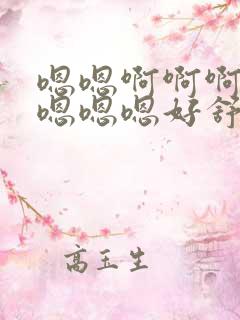 嗯嗯啊啊啊
嗯嗯嗯好舒
高玉生